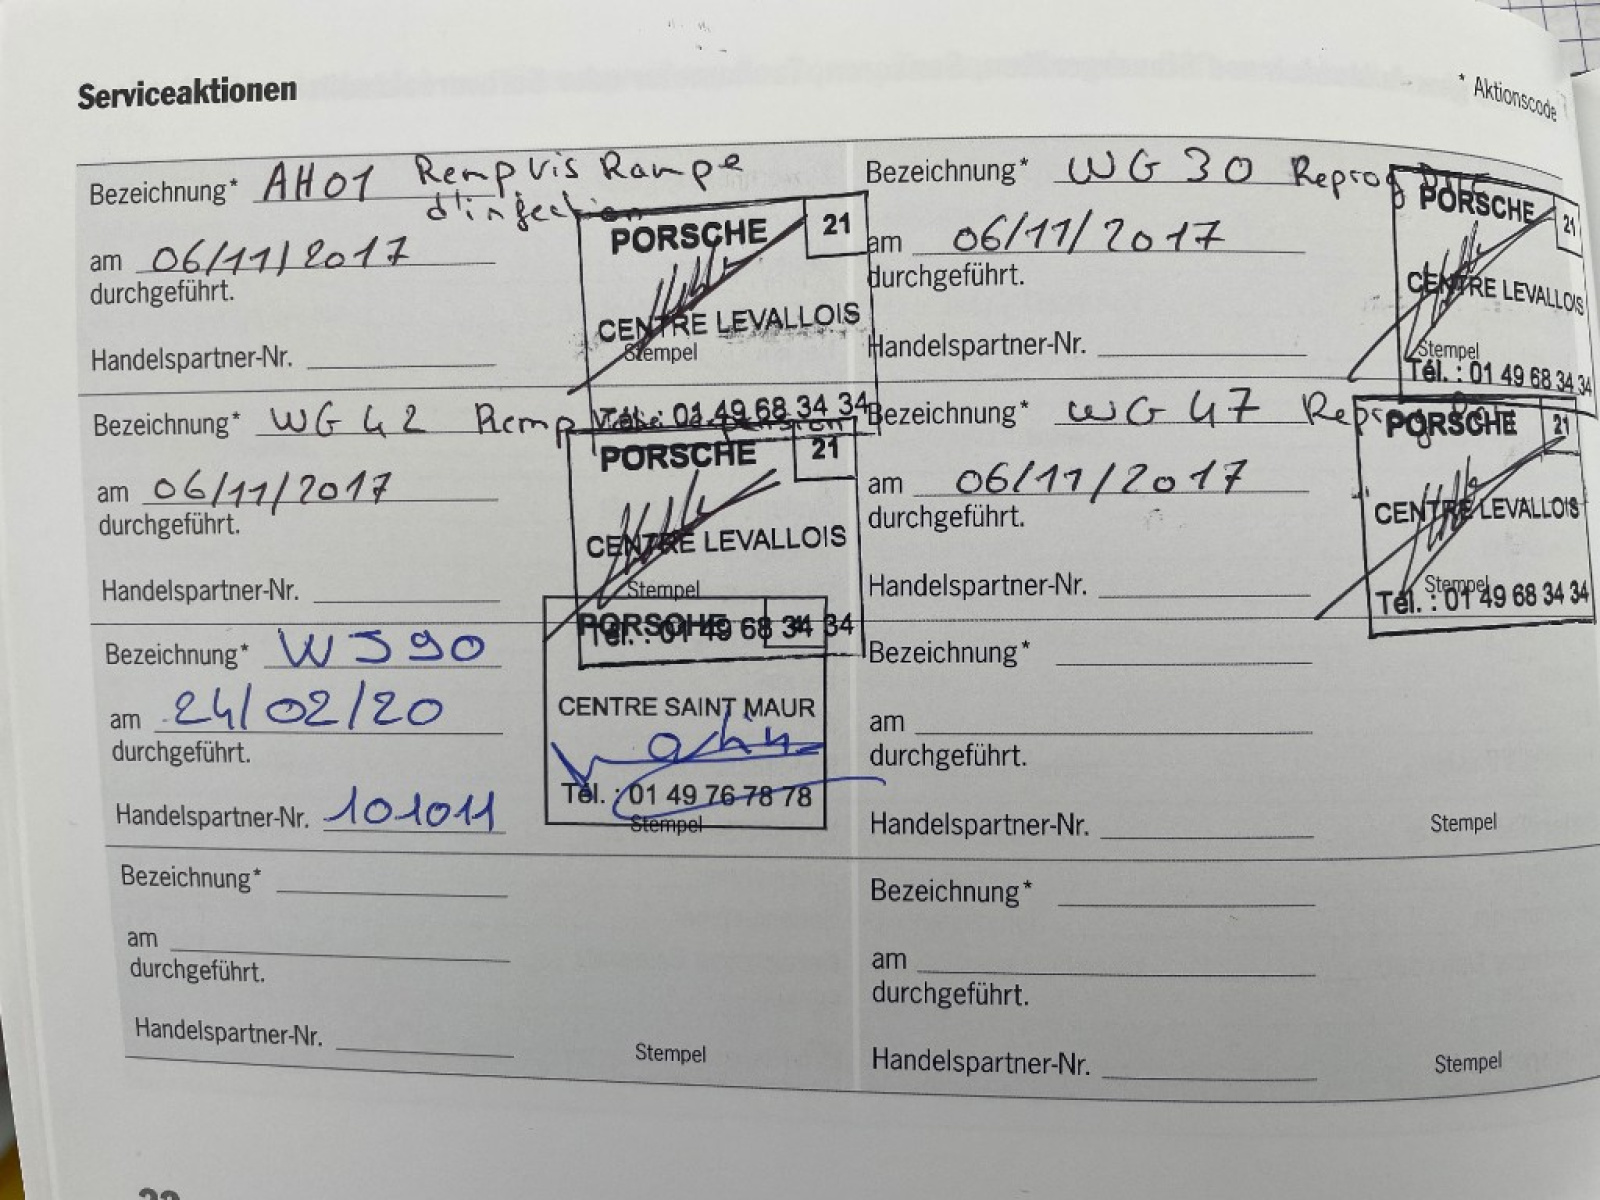 Serviceaktionen
* Aktionscode
Bezeichnung* AH01 Remp Vis Rampe
d'injection
am 06/11/2017
durchgeführt.
Handelspartner-Nr.
PORSCHE 21
CENTRE LEVALLOIS
Stempel
Tél. : 01 49 68 34 34
Bezeichnung* WG 30 Reprog
am 06/11/2017
durchgeführt.
Handelspartner-Nr.
PORSCHE 21
CENTRE LEVALLOIS
Stempel
Tél. : 01 49 68 34 34
Bezeichnung* WG 42 Remp
am 06/11/2017
durchgeführt.
Handelspartner-Nr.
PORSCHE 21
CENTRE LEVALLOIS
Stempel
Tél. : 01 49 68 34 34
Bezeichnung* WG 47 Reprog
am 06/11/2017
durchgeführt.
Handelspartner-Nr.
PORSCHE 21
CENTRE LEVALLOIS
Stempel
Tél. : 01 49 68 34 34
Bezeichnung* WJ90
am 24/02/20
durchgeführt.
Handelspartner-Nr. 101011
PORSCHE
CENTRE SAINT MAUR
Tél. : 01 49 76 78 78
Stempel
Bezeichnung*
am
durchgeführt.
Handelspartner-Nr.
Stempel
Bezeichnung*
am
durchgeführt.
Handelspartner-Nr.
Stempel
Bezeichnung*
am
durchgeführt.
Handelspartner-Nr.
Stempel